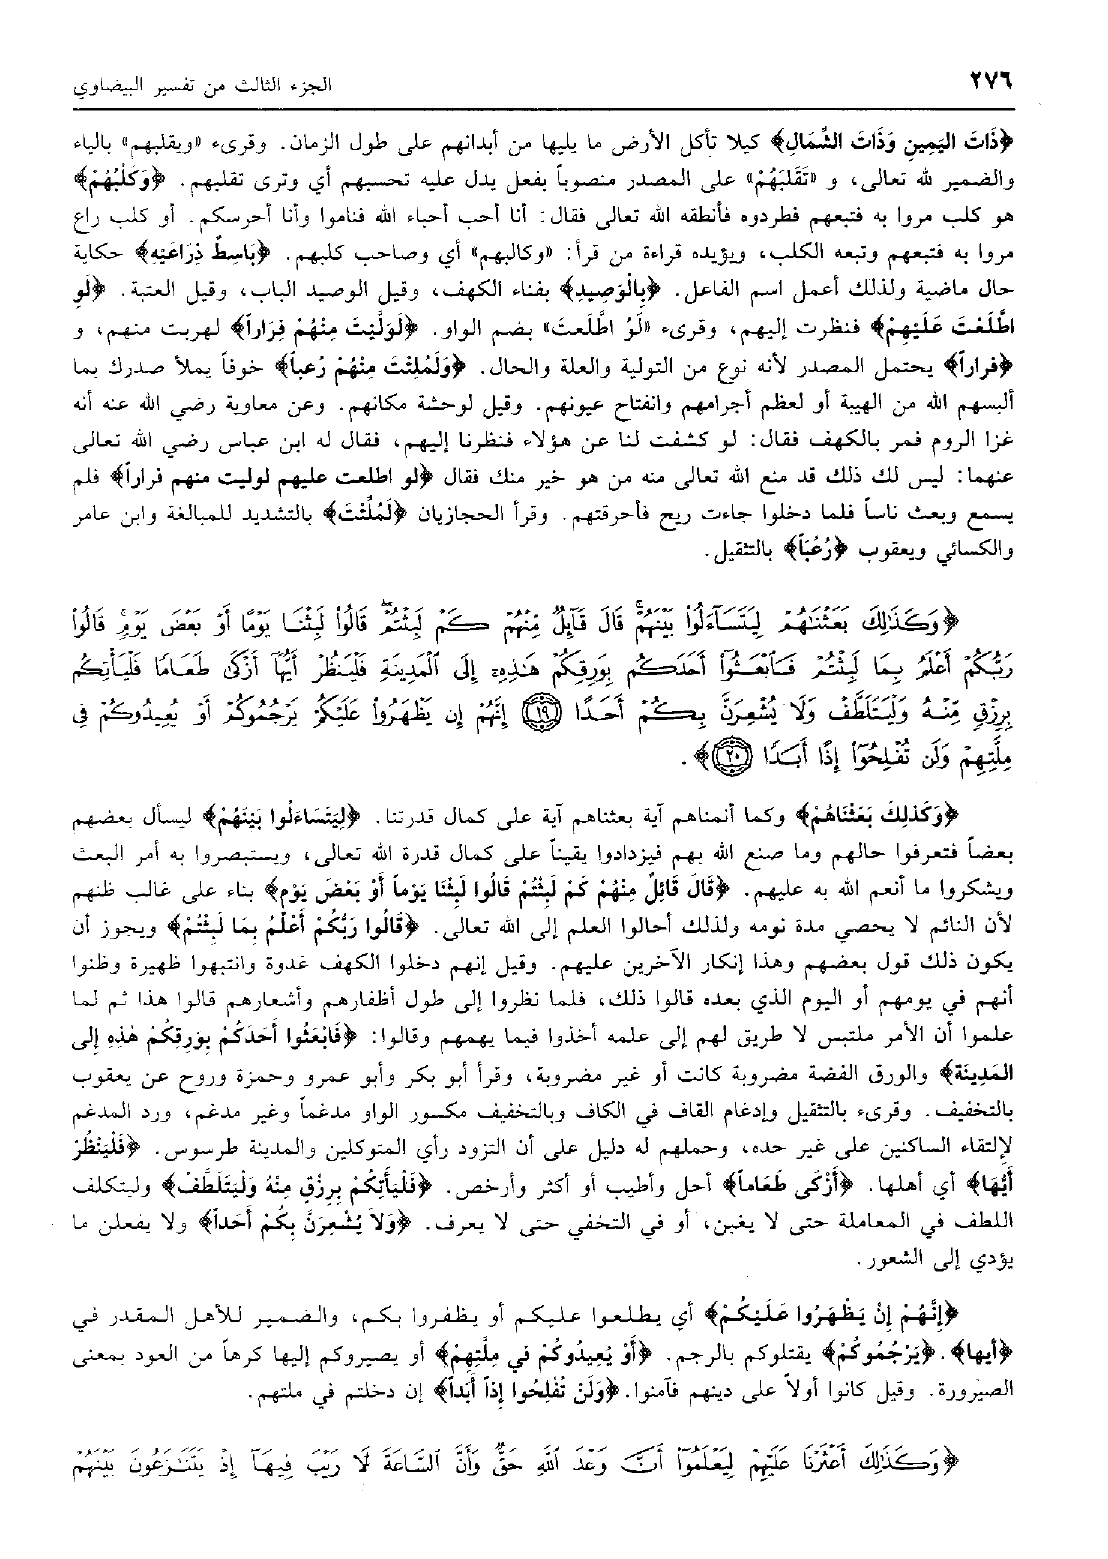 ٢٧٦
الجزء الثالث من تفسير البيضاوي
﴿ذَاتَ اليَمِينِ وَذَاتَ الشِّمَالِ﴾ كيلا تأكل الأرض ما يليها من أبدانهم على طول الزمان. وقرىء «ويقلبهم» بالياء
والضمير لله تعالى، و «تَقَلَبَهُمْ» على المصدر منصوباً بفعل يدل عليه تحسبهم أي وترى تقلبهم. ﴿وَكَلْبُهُمْ﴾
هو كلب مروا به فتبعهم فطردوه فأنطقه الله تعالى فقال: أنا أحب أحباء الله فناموا وأنا أحرسكم. أو كلب راع
مروا به فتبعهم وتبعه الكلب، ويؤيده قراءة من قرأ: «وكالبهم» أي وصاحب كلبهم. ﴿بَاسِطٌ ذِرَاعَيْهِ﴾ حكاية
حال ماضية ولذلك أعمل اسم الفاعل. ﴿بِالْوَصِيدِ﴾ بفناء الكهف، وقيل الوصيد الباب، وقيل العتبة. ﴿لَوِ
اطَّلَعْتَ عَلَيهِمْ﴾ فنظرت إليهم، وقرىء «لَوُ اطَّلَعتَ» بضم الواو. ﴿لَوَلَّيْتَ مِنْهُمْ فِرَاراً﴾ لهربت منهم، و
﴿فراراً﴾ يحتمل المصدر لأنه نوع من التولية والعلة والحال. ﴿وَلَمُلِئْتَ مِنْهُمْ رُعباً﴾ خوفاً يملأ صدرك بما
ألبسهم الله من الهيبة أو لعظم أجرامهم وانفتاح عيونهم. وقيل لوحشة مكانهم. وعن معاوية رضي الله عنه أنه
غزا الروم فمر بالكهف فقال: لو كشفت لنا عن هؤلاء فنظرنا إليهم، فقال له ابن عباس رضي الله تعالى
عنهما: ليس لك ذلك قد منع الله تعالى منه من هو خير منك فقال ﴿لو اطلعت عليهم لوليت منهم فراراً﴾ فلم
يسمع وبعث ناساً فلما دخلوا جاءت ريح فأحرقتهم. وقرأ الحجازيان ﴿لَمُلِّئْتَ﴾ بالتشديد للمبالغة وابن عامر
والكسائي ويعقوب ﴿رُعُبَاً﴾ بالتثقيل.
﴿وَكَذَٰلِكَ بَعَثْنَٰهُمْ لِيَتَسَآءَلُوا۟ بَيْنَهُمْ ۚ قَالَ قَآئِلٌ مِّنْهُمْ كَمْ لَبِثْتُمْ ۖ قَالُوا۟ لَبِثْنَا يَوْمًا أَوْ بَعْضَ يَوْمٍ ۚ قَالُوا۟
رَبُّكُمْ أَعْلَمُ بِمَا لَبِثْتُمْ فَٱبْعَثُوٓا۟ أَحَدَكُم بِوَرِقِكُمْ هَٰذِهِۦٓ إِلَى ٱلْمَدِينَةِ فَلْيَنظُرْ أَيُّهَآ أَزْكَىٰ طَعَامًا فَلْيَأْتِكُم
بِرِزْقٍ مِّنْهُ وَلْيَتَلَطَّفْ وَلَا يُشْعِرَنَّ بِكُمْ أَحَدًا ١٩ إِنَّهُمْ إِن يَظْهَرُوا۟ عَلَيْكُمْ يَرْجُمُوكُمْ أَوْ يُعِيدُوكُمْ فِى
مِلَّتِهِمْ وَلَن تُفْلِحُوٓا۟ إِذًا أَبَدًا ٢٠﴾.
﴿وَكَذَلِكَ بَعَثْنَاهُمْ﴾ وكما أنمناهم آية بعثناهم آية على كمال قدرتنا. ﴿لِيَتَسَاءَلُوا بَيْنَهُمْ﴾ ليسأل بعضهم
بعضاً فتعرفوا حالهم وما صنع الله بهم فيزدادوا يقيناً على كمال قدرة الله تعالى، ويستبصروا به أمر البعث
ويشكروا ما أنعم الله به عليهم. ﴿قَالَ قَائِلٌ مِنْهُمْ كَمْ لَبِثْتُمْ قَالُوا لَبِثْنَا يَوماً أَوْ بَعْضَ يَوْمٍ﴾ بناء على غالب ظنهم
لأن النائم لا يحصي مدة نومه ولذلك أحالوا العلم إلى الله تعالى. ﴿قَالُوا رَبُّكُمْ أَعْلَمُ بِمَا لَبِثْتُمْ﴾ ويجوز أن
يكون ذلك قول بعضهم وهذا إنكار الآخرين عليهم. وقيل إنهم دخلوا الكهف غدوة وانتبهوا ظهيرة وظنوا
أنهم في يومهم أو اليوم الذي بعده قالوا ذلك، فلما نظروا إلى طول أظفارهم وأشعارهم قالوا هذا ثم لما
علموا أن الأمر ملتبس لا طريق لهم إلى علمه أخذوا فيما يهمهم وقالوا: ﴿فَابْعَثُوا أَحَدَكُمْ بِوَرِقِكُمْ هٰذِهِ إِلى
المَدِينَةِ﴾ والورق الفضة مضروبة كانت أو غير مضروبة، وقرأ أبو بكر وأبو عمرو وحمزة وروح عن يعقوب
بالتخفيف. وقرىء بالتثقيل وإدغام القاف في الكاف وبالتخفيف مكسور الواو مدغماً وغير مدغم، ورد المدغم
لإلتقاء الساكنين على غير حده، وحملهم له دليل على أن التزود رأي المتوكلين والمدينة طرسوس. ﴿فَلْيَنْظُرْ
أَيُّهَا﴾ أي أهلها. ﴿أَزْكَى طَعَاماً﴾ أحل وأطيب أو أكثر وأرخص. ﴿فَلْيَأْتِكُمْ بِرِزْقٍ مِنْهُ وَلْيَتَلَطَّفْ﴾ وليتكلف
اللطف في المعاملة حتى لا يغبن، أو في التخفي حتى لا يعرف. ﴿وَلاَ يُشْعِرَنَّ بِكُمْ أَحَداً﴾ ولا يفعلن ما
يؤدي إلى الشعور.
﴿إِنَّهُمْ إِنْ يَظْهَرُوا عَلَيْكُمْ﴾ أي يطلعوا عليكم أو يظفروا بكم، والضمير للأهل المقدر في
﴿أيها﴾. ﴿يَرْجُمُوكُمْ﴾ يقتلوكم بالرجم. ﴿أَوْ يُعِيدُوكُمْ في مِلَّتِهِمْ﴾ أو يصيروكم إليها كرهاً من العود بمعنى
الصيرورة. وقيل كانوا أولاً على دينهم فآمنوا. ﴿وَلَنْ تُفْلِحُوا إِذاً أَبَداً﴾ إن دخلتم في ملتهم.
﴿وَكَذَٰلِكَ أَعْثَرْنَا عَلَيْهِمْ لِيَعْلَمُوٓا۟ أَنَّ وَعْدَ ٱللَّهِ حَقٌّ وَأَنَّ ٱلسَّاعَةَ لَا رَيْبَ فِيهَآ إِذْ يَتَنَٰزَعُونَ بَيْنَهُمْ